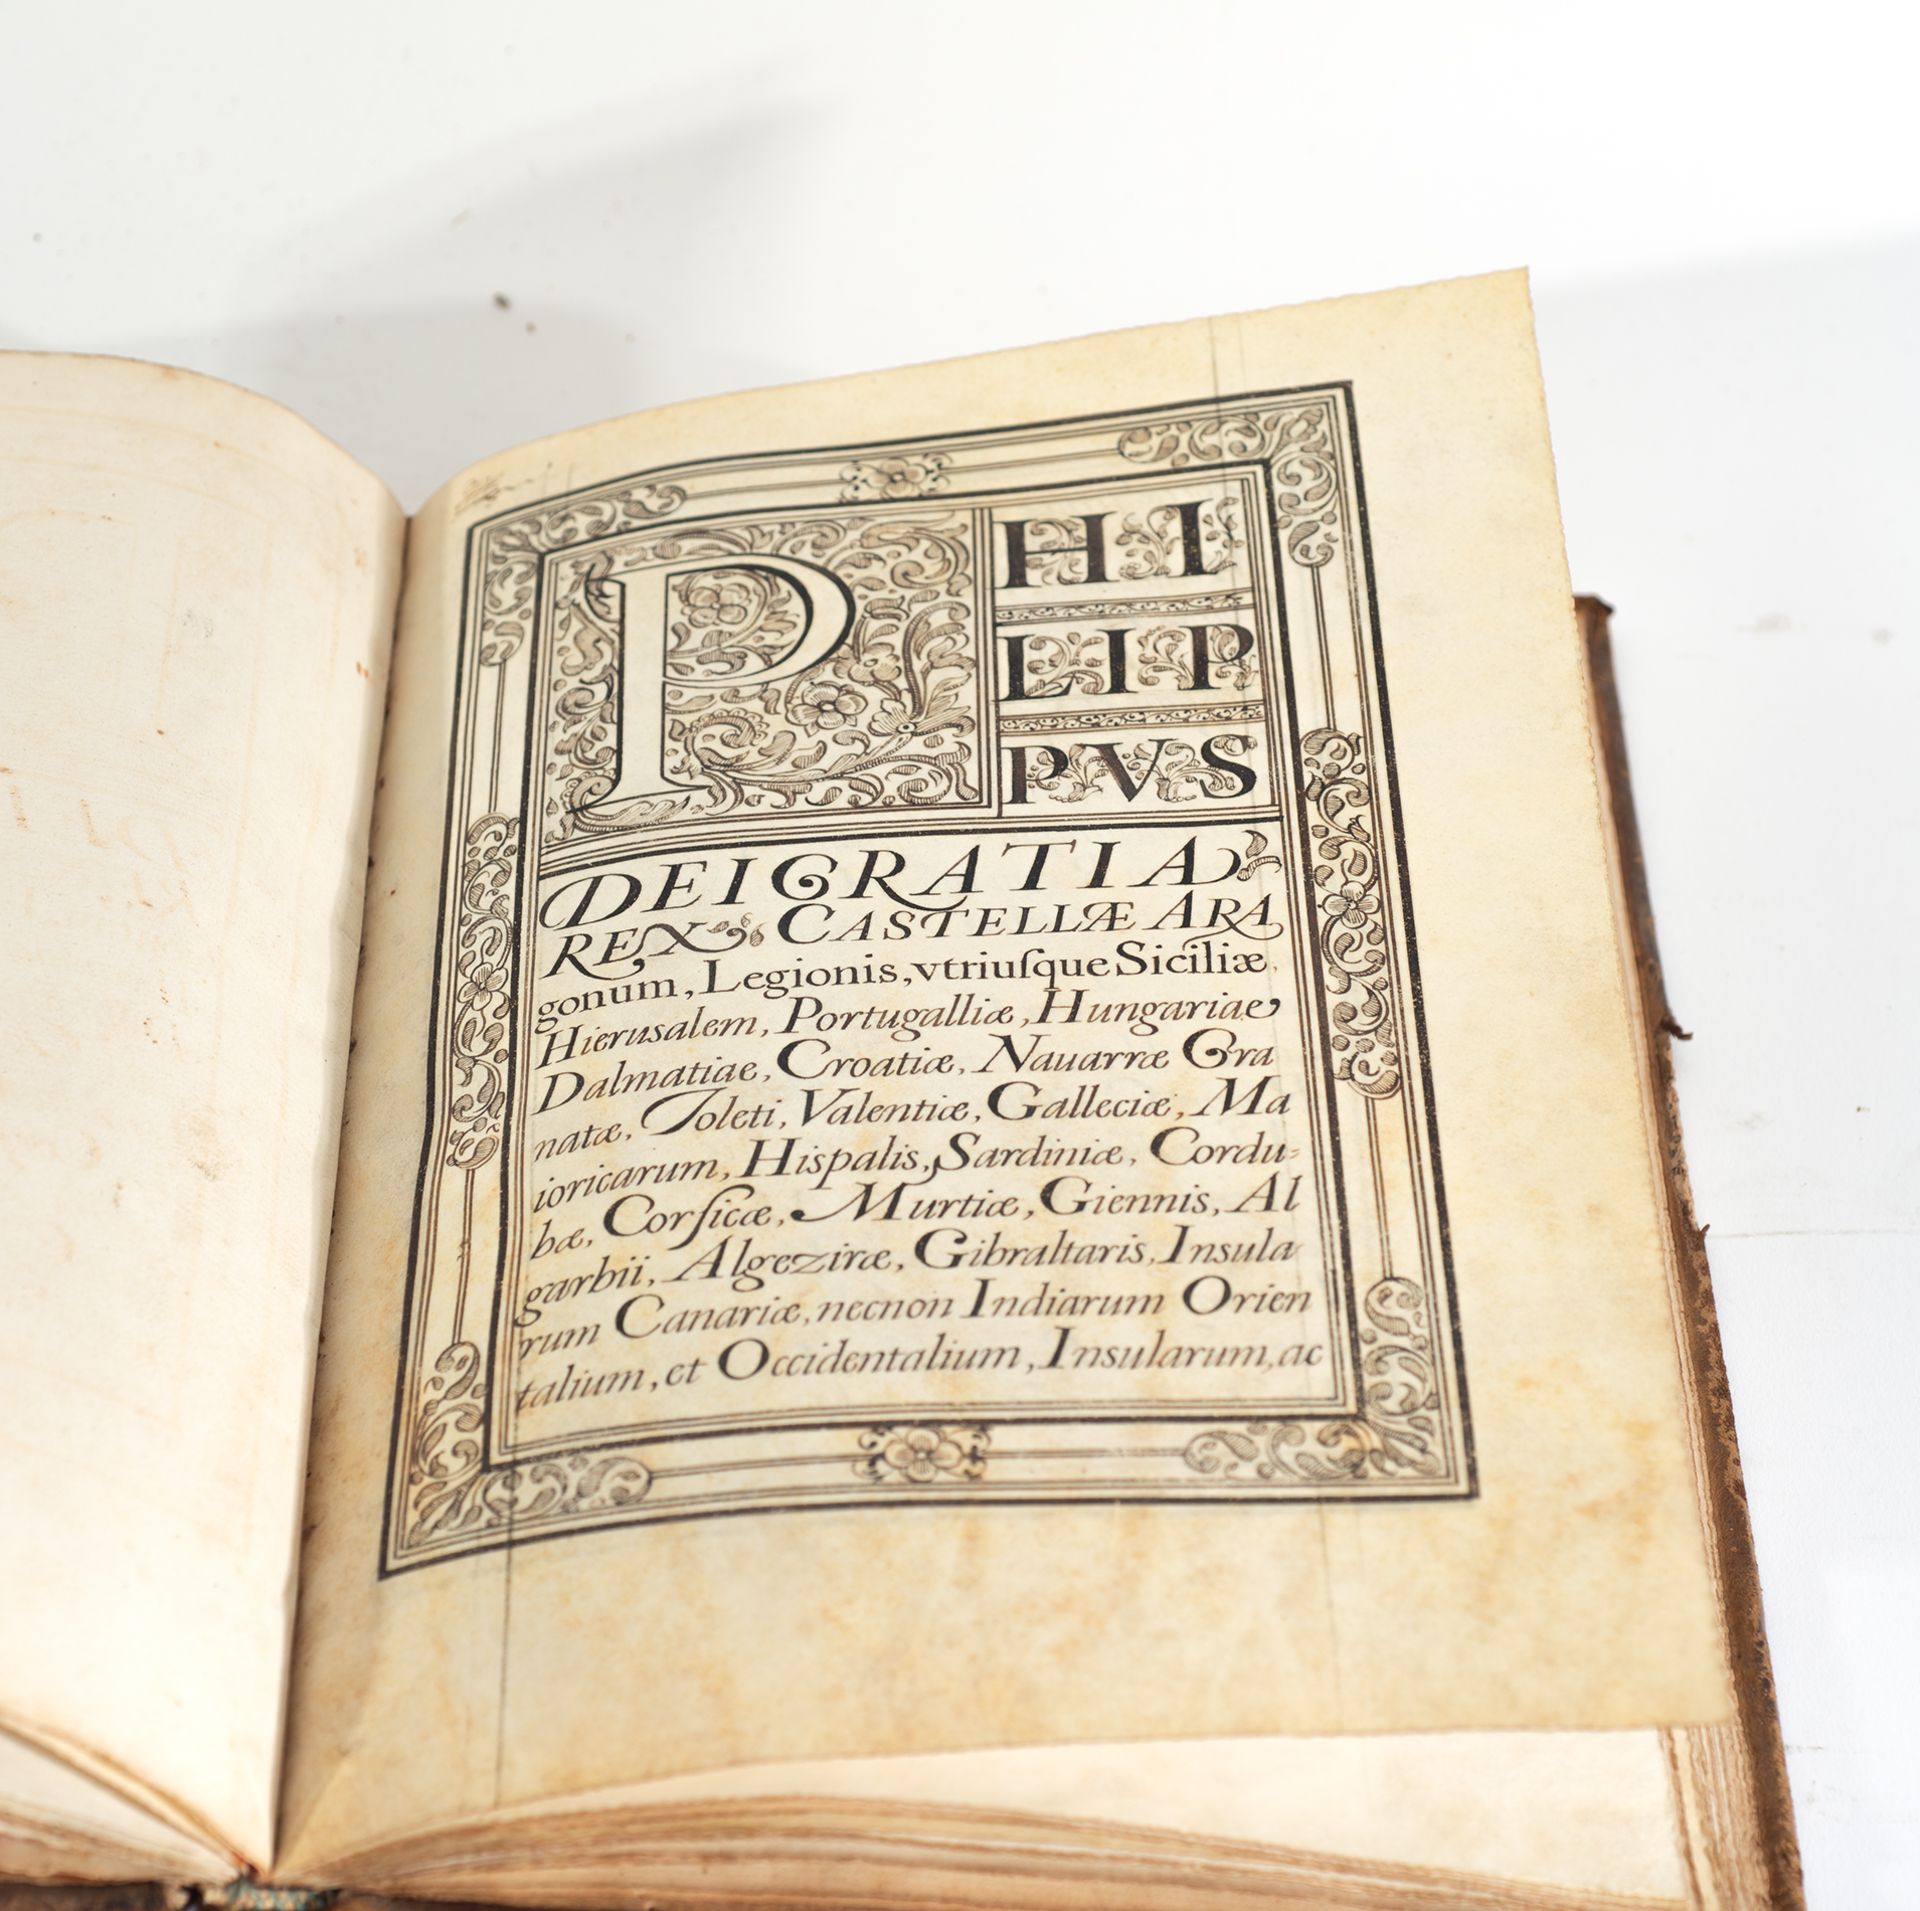 PHI
LIP
PVS
DEI GRATIA
REX CASTELLÆ ARA
gonum, Legionis, vtriuſque Siciliæ,
Hierusalem, Portugalliæ, Hungariae
Dalmatiae, Croatiæ, Nauarræ Gra
natæ, Toleti, Valentiæ, Galleciæ, Ma
ioricarum, Hispalis, Sardiniæ, Cordu=
bæ, Corſicæ, Murtiæ, Giennis, Al
garbii, Algeziræ, Gibraltaris, Insula
rum Canariæ, necnon Indiarum Orien
talium, et Occidentalium, Insularum, ac